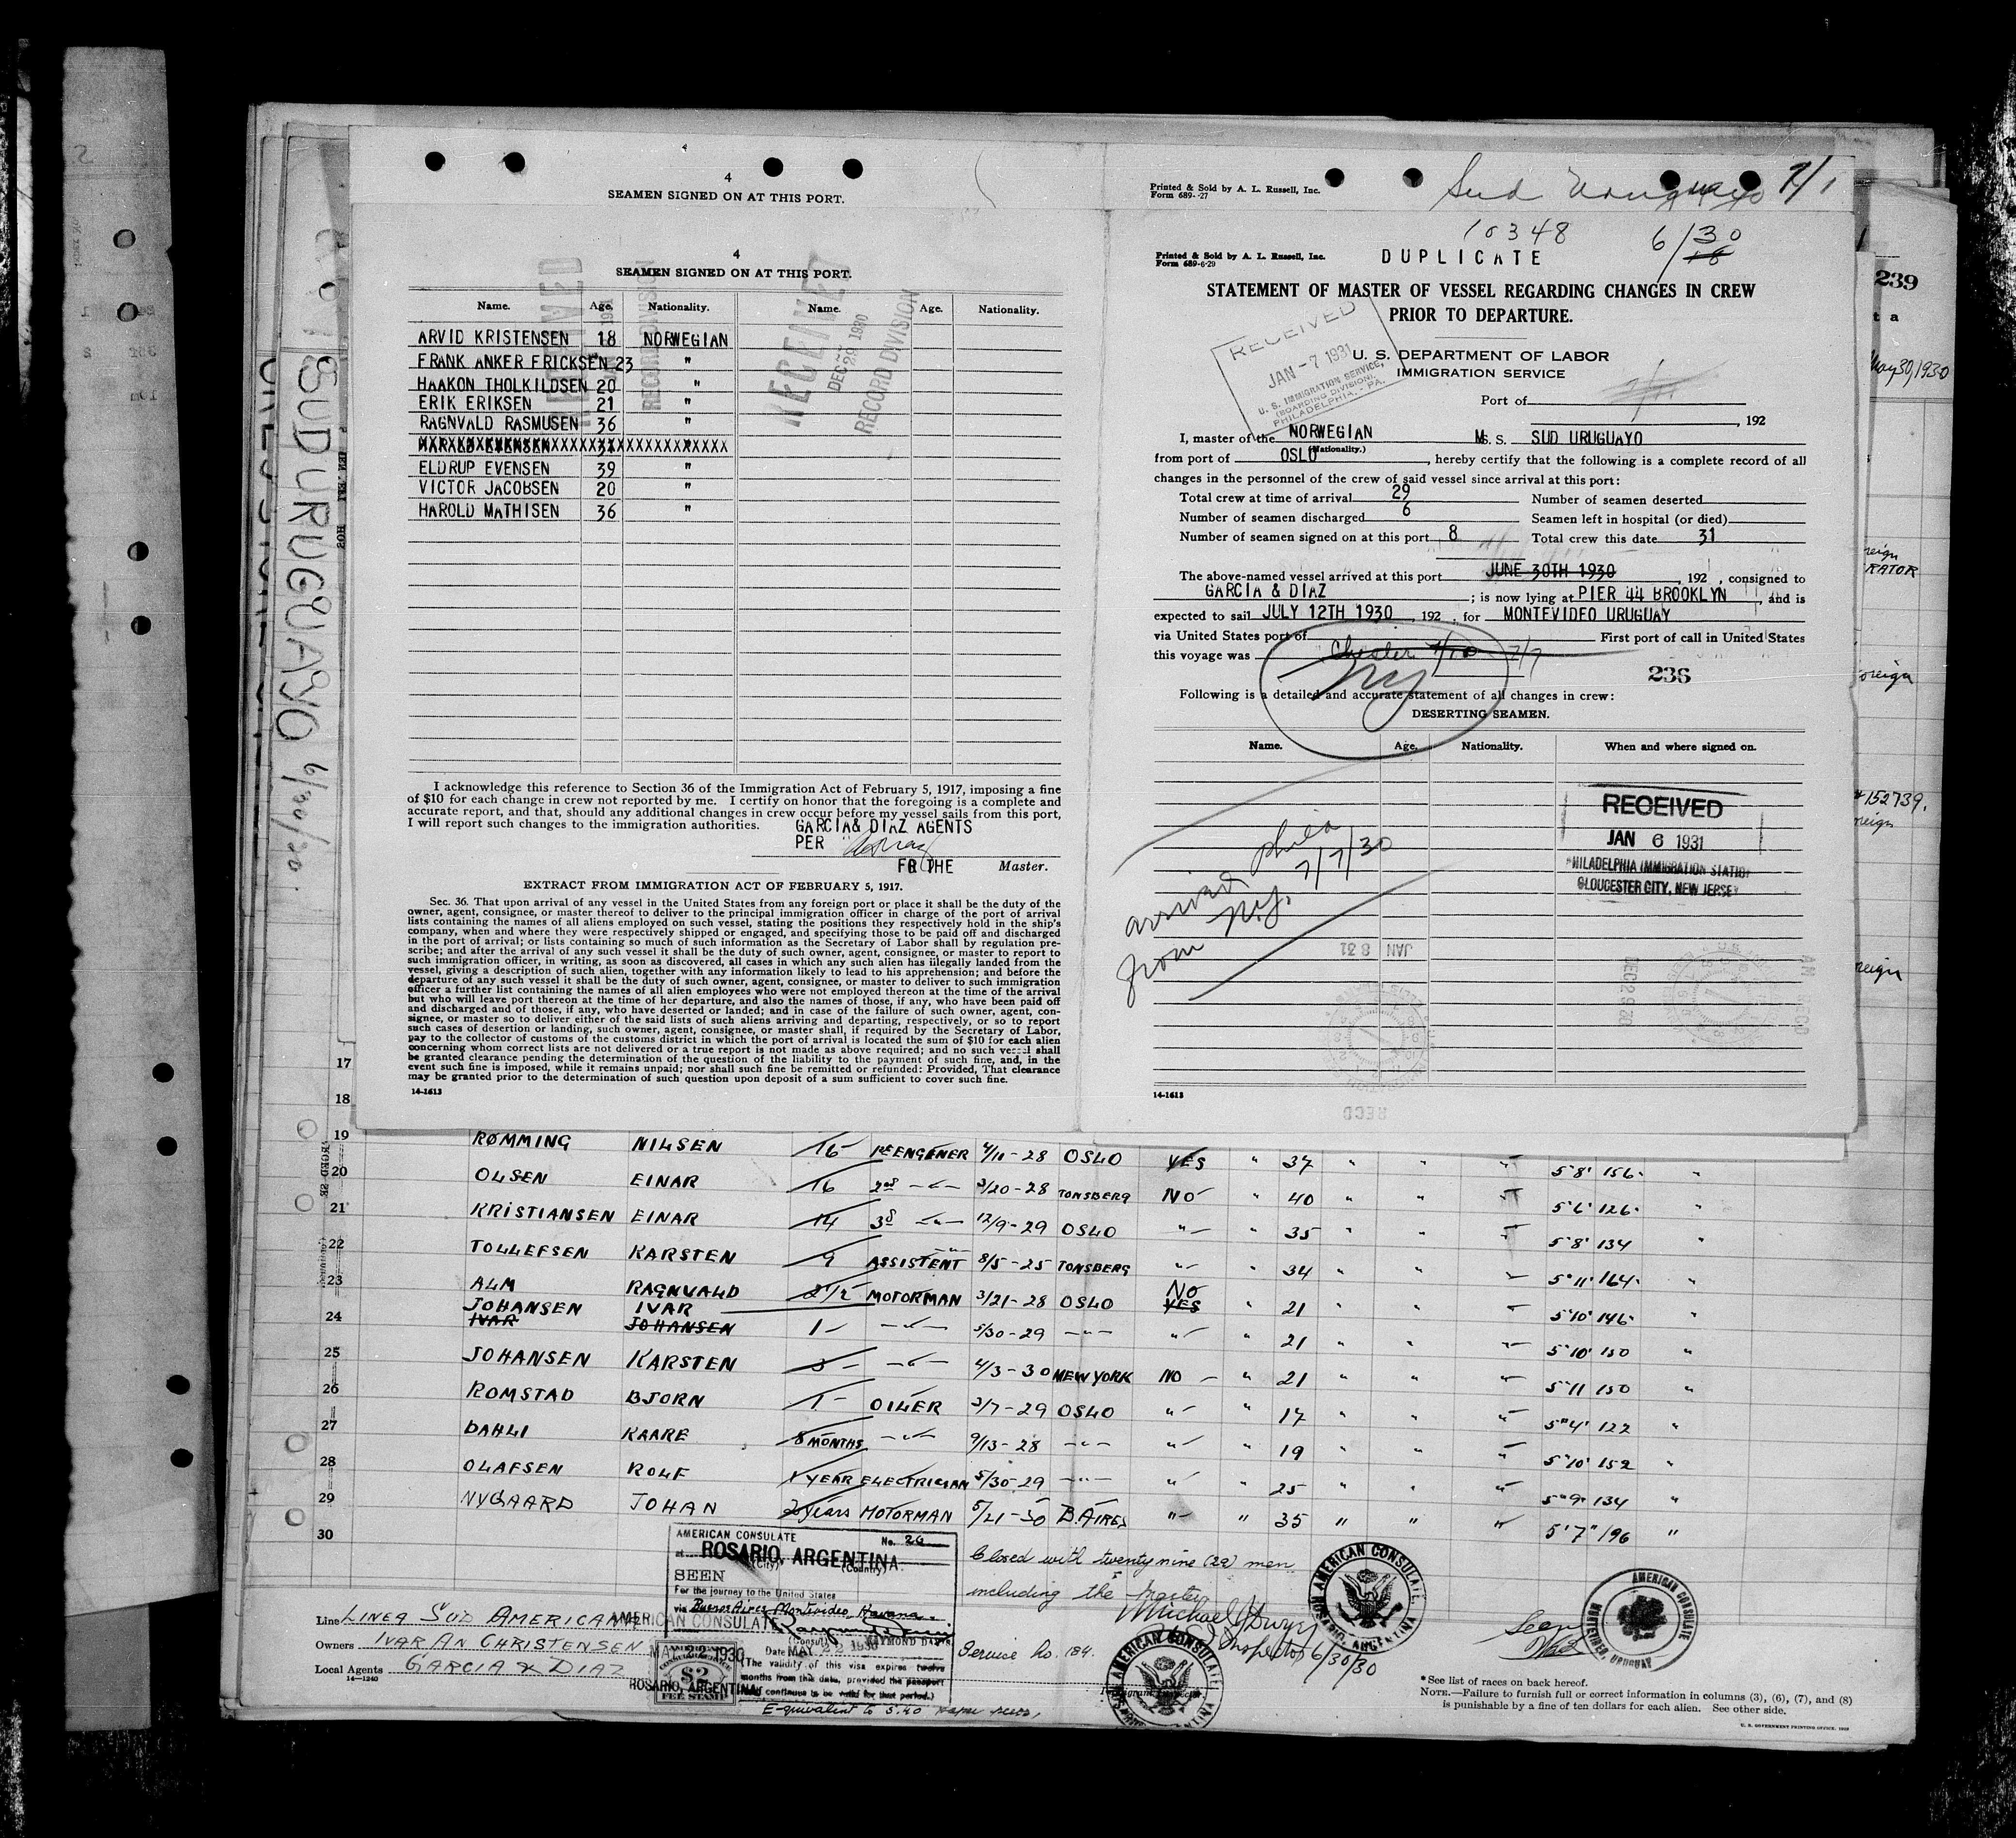 4
SEAMEN SIGNED ON AT THIS PORT.
4
SEAMEN SIGNED ON AT THIS PORT.
Name. Age. Nationality. Name. Age. Nationality.
ARVID KRISTENSEN 18 NORWEGIAN
FRANK ANKER ERICKSEN 23 "
HAAKON THOLKILDSEN 20 "
ERIK ERIKSEN 21 "
RAGNVALD RASMUSEN 36 "
ELDRUP EVENSEN 39 "
VICTOR JACOBSEN 20 "
HAROLD MATHISEN 36 "
RECEIVED
DEC 29 1930
RECORD DIVISION
I acknowledge this reference to Section 36 of the Immigration Act of February 5, 1917, imposing a fine
of $10 for each change in crew not reported by me. I certify on honor that the foregoing is a complete and
accurate report, and that, should any additional changes in crew occur before my vessel sails from this port,
I will report such changes to the immigration authorities.
GARCIA& DIAZ AGENTS
PER
FOR THE Master.
EXTRACT FROM IMMIGRATION ACT OF FEBRUARY 5, 1917.
Sec. 36. That upon arrival of any vessel in the United States from any foreign port or place it shall be the duty of the
owner, agent, consignee, or master thereof to deliver to the principal immigration officer in charge of the port of arrival
lists containing the names of all aliens employed on such vessel, stating the positions they respectively hold in the ship's
company, when and where they were respectively shipped or engaged, and specifying those to be paid off and discharged
in the port of arrival; or lists containing so much of such information as the Secretary of Labor shall by regulation pre-
scribe; and after the arrival of any such vessel it shall be the duty of such owner, agent, consignee, or master to report to
such immigration officer, in writing, as soon as discovered, all cases in which any such alien has illegally landed from the
vessel, giving a description of such alien, together with any information likely to lead to his apprehension; and before the
departure of any such vessel it shall be the duty of such owner, agent, consignee, or master to deliver to such immigration
officer a further list containing the names of all alien employees who were not employed thereon at the time of the arrival
but who will leave port thereon at the time of her departure, and also the names of those, if any, who have been paid off
and discharged and of those, if any, who have deserted or landed; and in case of the failure of such owner, agent, con-
signee, or master so to deliver either of the said lists of such aliens arriving and departing, respectively, or so to report
such cases of desertion or landing, such owner, agent, consignee, or master shall, if required by the Secretary of Labor,
pay to the collector of customs of the customs district in which the port of arrival is located the sum of $10 for each alien
concerning whom correct lists are not delivered or a true report is not made as above required; and no such vessel shall
be granted clearance pending the determination of the question of the liability to the payment of such fine, and, in the
event such fine is imposed, while it remains unpaid; nor shall such fine be remitted or refunded: Provided, That clearance
may be granted prior to the determination of such question upon deposit of a sum sufficient to cover such fine.
14-1613
Printed & Sold by A. L. Russell, Inc.
Form 689--27
Sud Uruguayo 7/1
10348
6/30
Printed & Sold by A. L. Russell, Inc.
Form 689-6-29
DUPLICATE
STATEMENT OF MASTER OF VESSEL REGARDING CHANGES IN CREW
PRIOR TO DEPARTURE.
U. S. DEPARTMENT OF LABOR
IMMIGRATION SERVICE
RECEIVED
JAN -7 1931
U. S. IMMIGRATION SERVICE,
(BOARDING DIVISION),
PHILADELPHIA, - PA.
Port of
, 192
I, master of the NORWEGIAN M. S. S. SUD URUGUAYO
(Nationality.)
from port of OSLO, hereby certify that the following is a complete record of all
changes in the personnel of the crew of said vessel since arrival at this port:
Total crew at time of arrival 29 Number of seamen deserted
Number of seamen discharged 6 Seamen left in hospital (or died)
Number of seamen signed on at this port 8 Total crew this date 31
The above-named vessel arrived at this port JUNE 30TH 1930, 192 , consigned to
GARCIA & DIAZ ; is now lying at PIER 44 BROOKLYN, and is
expected to sail JULY 12TH 1930, 192 , for MONTEVIDEO URUGUAY
via United States port of First port of call in United States
this voyage was Chester 7/10 7/7
NY
236
Following is a detailed and accurate statement of all changes in crew:
DESERTING SEAMEN.
Name. Age. Nationality. When and where signed on.
RECEIVED
JAN 6 1931
PHILADELPHIA IMMIGRATION STATION
GLOUCESTER CITY, NEW JERSEY
arrived Phila
from N.Y. 7/7/30
JAN 8 31
DEC 29 30
RECD
14-1613
239
May 30, 1930
#152739.
SUD URUGUAYO 6/30/30
17
18
19 RØMMING NILSEN 16 4/11-28 OSLO YES " 37 " " " 5'8" 156 "
20 OLSEN EINAR 16 2nd 3/20-28 TONSBERG NO " 40 " " " 5'6" 126 "
21 KRISTIANSEN EINAR 14 3d 12/9-29 OSLO " " 35 " " " 5'8" 134 "
22 TOLLEFSEN KARSTEN 9 ASSISTENT 8/5-25 TONSBERG " " 34 " " " 5'11" 164 "
23 ALM RAGNVALD 2 1/2 MOTORMAN 3/21-28 OSLO NO YES " 21 " " " 5'10" 146 "
24 JOHANSEN IVAR IVAR JOHANSEN 1 " 5/30-29 " " " 21 " " " 5'10" 150 "
25 JOHANSEN KARSTEN 3 " 4/3-30 NEW YORK NO " 21 " " " 5'11 150 "
26 ROMSTAD BJORN 1 OILER 3/7-29 OSLO " " 17 " " " 5"4' 122 "
27 DAHLI KAARE 8 MONTHS " 9/13-28 " " " 19 " " " 5'10' 152 "
28 OLAFSEN ROLF 1 YEAR ELECTRICIAN 5/30-29 " " " 25 " " " 5"9" 134 "
29 NYGAARD JOHAN 2 years MOTORMAN 5/21-30 B.AIRES " " 35 " " " 5'7" 196 "
30
AMERICAN CONSULATE No. 26
at ROSARIO, ARGENTINA.
(City) (Country)
SEEN
For the journey to the United States
via Buenos Aires Montevideo Havana
(Consul) RAYMOND DAVIS
Date MAY 22 1930
(The validity of this visa expires twelve
months from this date, provided the passport
continues to be valid for that period.)
Equivalent to 5.40
AMERICAN CONSULATE
MAY 22 1930
ROSARIO, ARGENTINA
$2
FEE STAMP
Closed with twenty nine (29) men
including the Master
Michael J Dwyer
Inspector 6/30/30
Service No. 184.
AMERICAN CONSULATE
ROSARIO, ARGENTINA
AMERICAN CONSULATE
Seen
AMERICAN CONSULATE
MONTEVIDEO, URUGUAY
Line LINEA SUD AMERICANA
Owners IVAR AN CHRISTENSEN
Local Agents GARCIA & DIAZ
14-1240
* See list of races on back hereof.
NOTE.—Failure to furnish full or correct information in columns (3), (6), (7), and (8)
is punishable by a fine of ten dollars for each alien. See other side.
U. S. GOVERNMENT PRINTING OFFICE. 1929